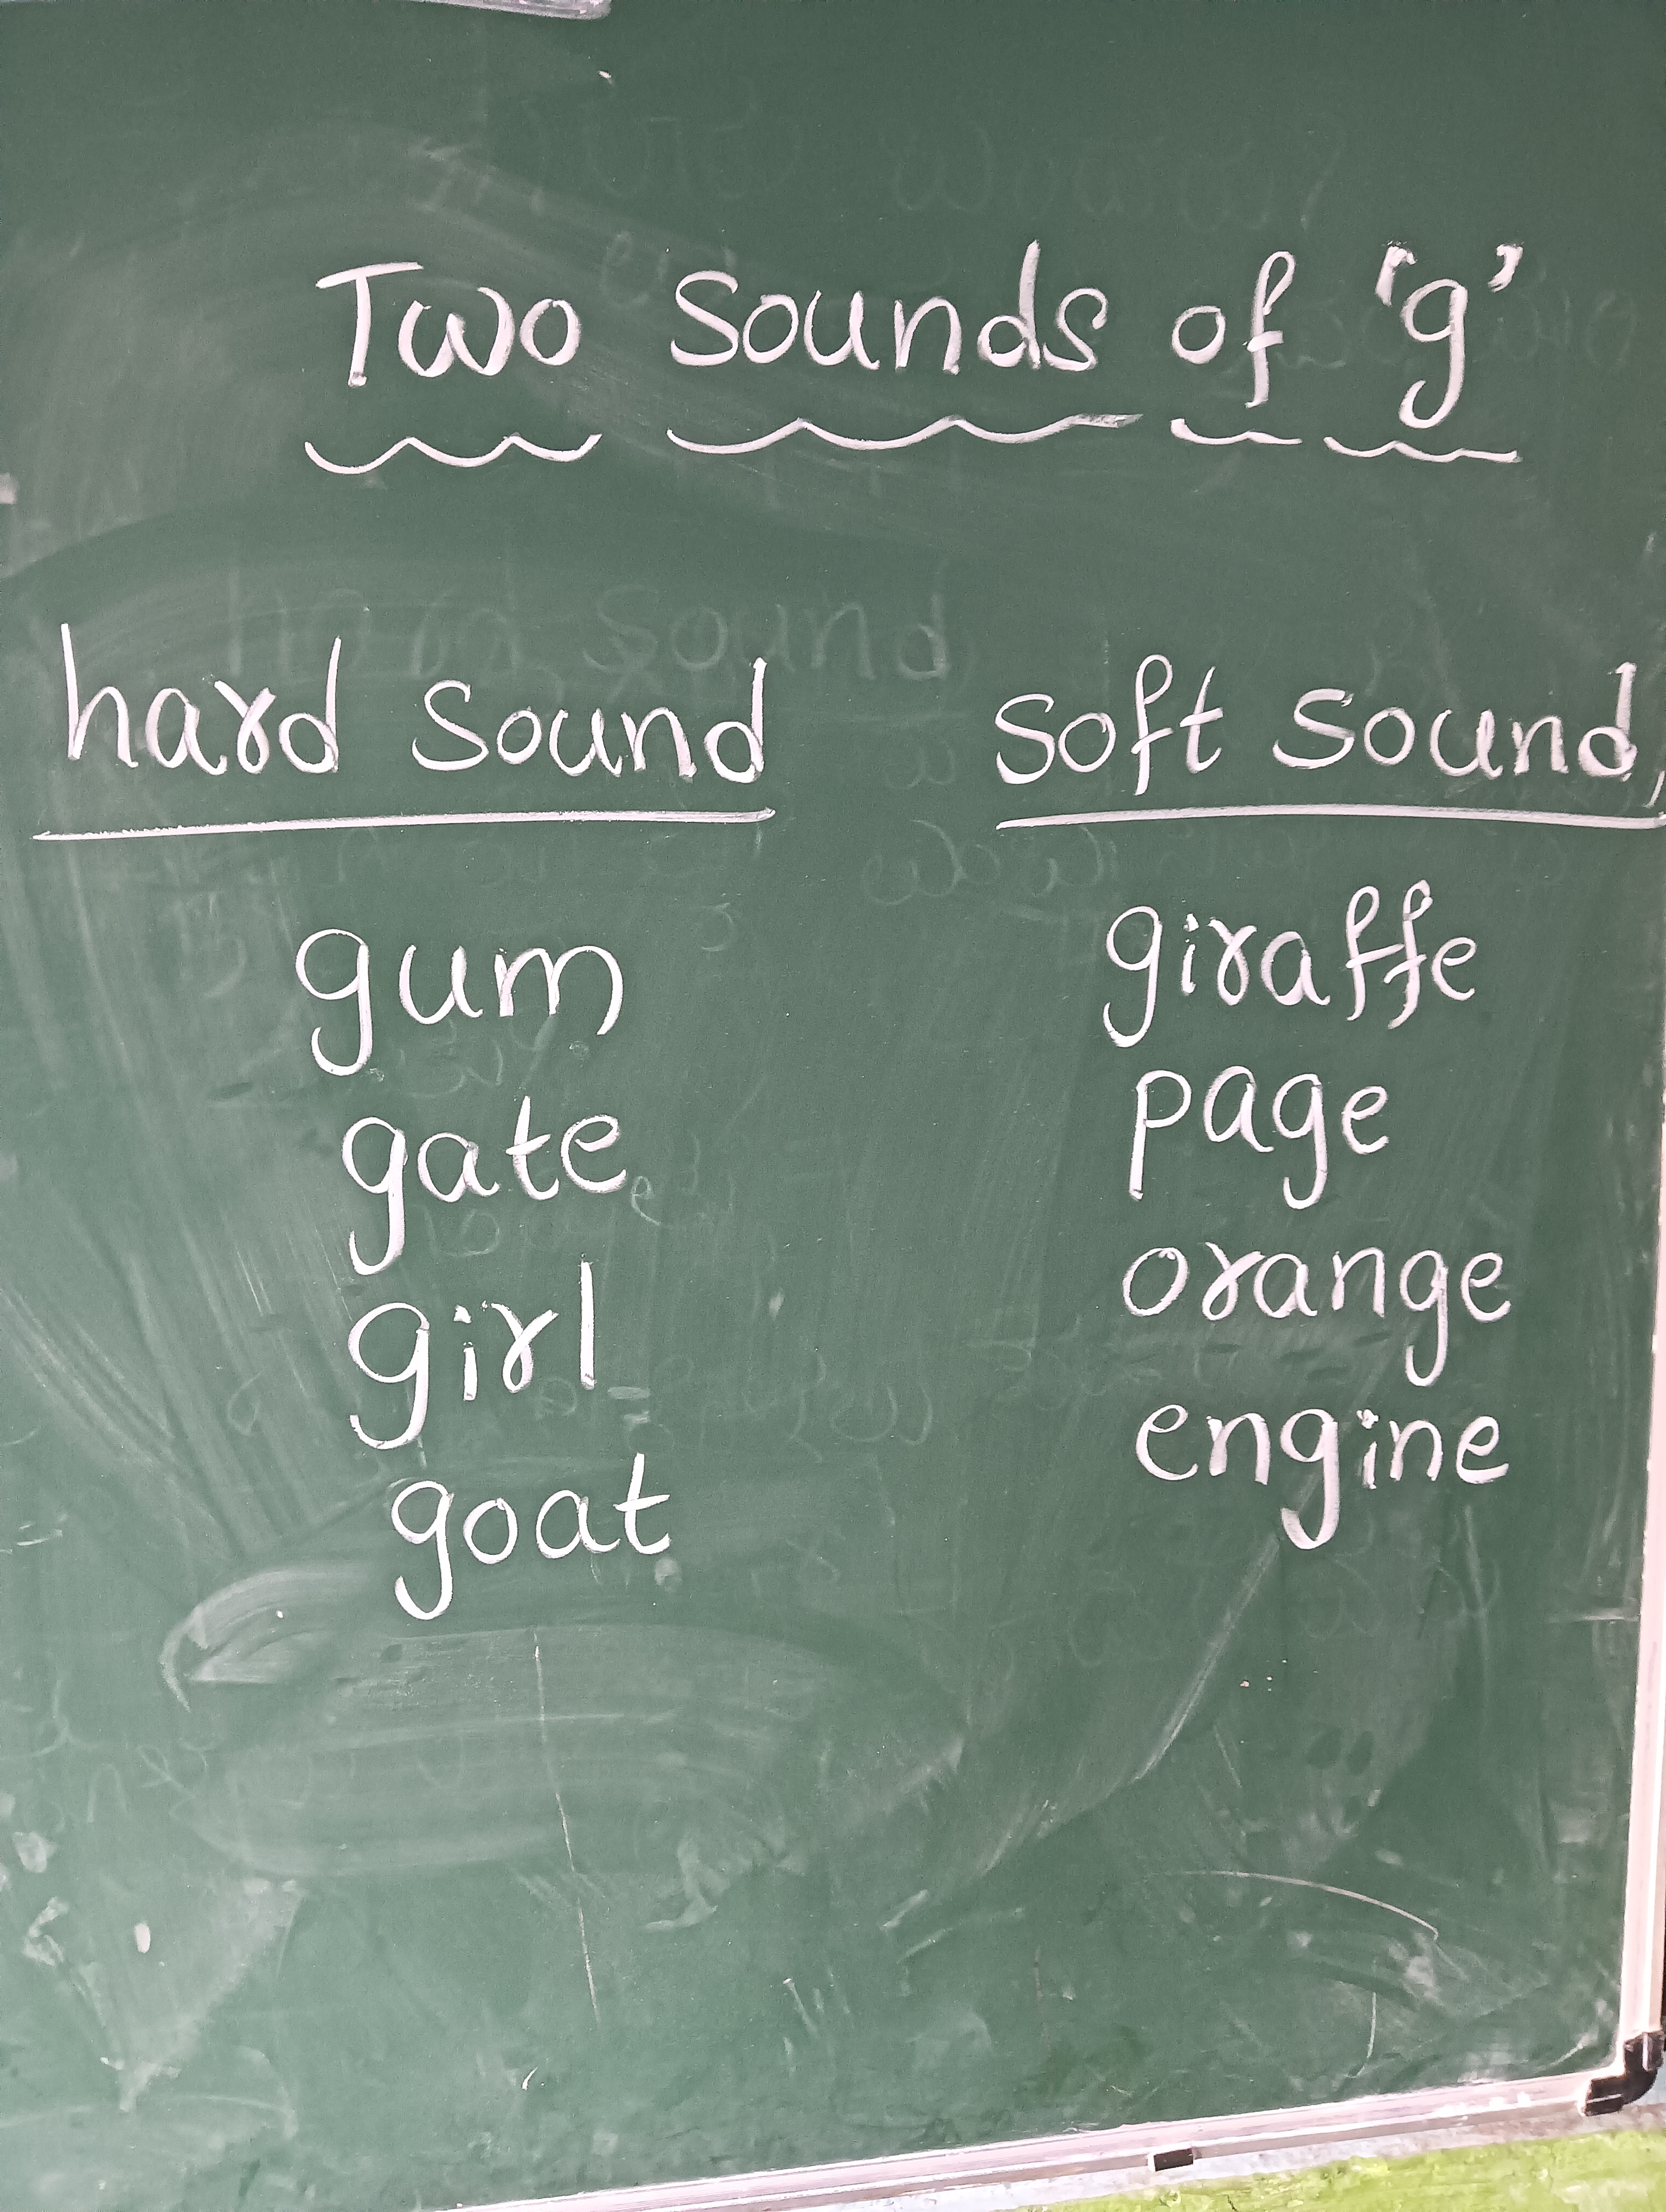 Two Sounds of 'g'
hard Sound
Soft Sound
gum
gate
girl
goat
giraffe
page
orange
engine